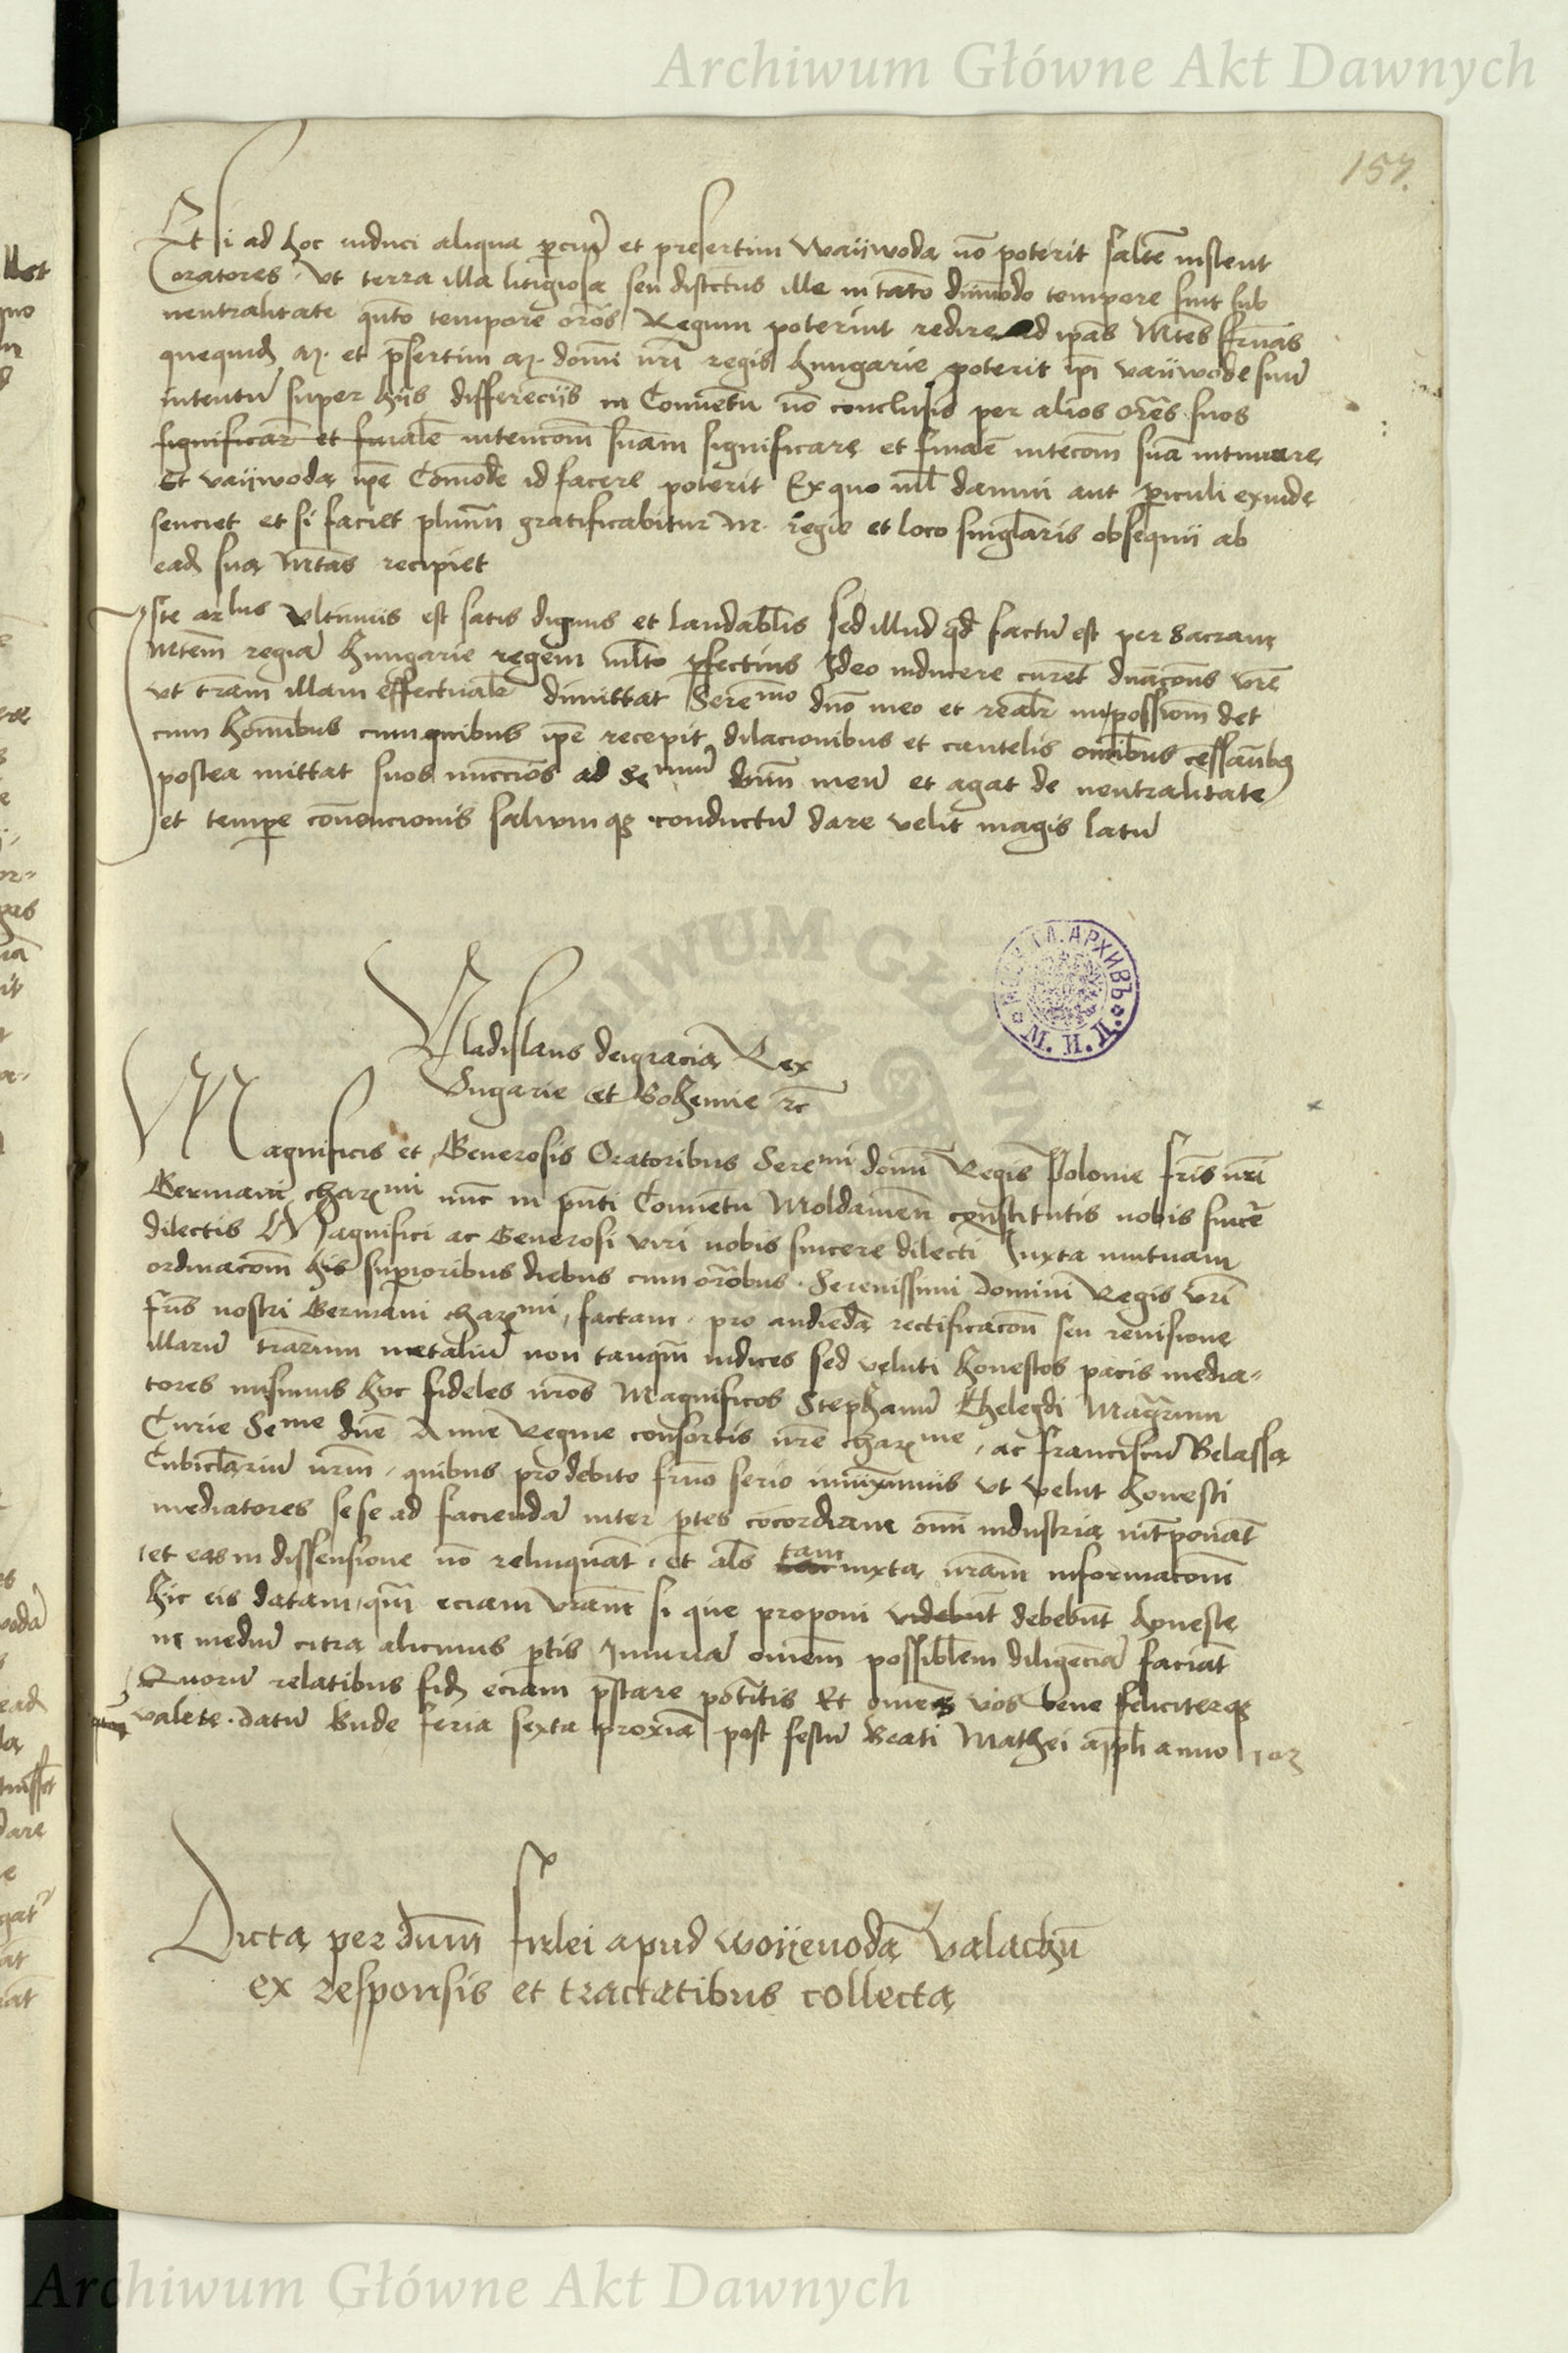 Archiwum Główne Akt Dawnych
157.
Et si ad hoc induci aliqua parciu et presertim Waÿwoda no poterit saltē instent
oratores Vt terra illa litigiosa seu districtus ille in tāto dumodo tempore sint sub
neutralitate qnto tempore orōs Regum poterint redire ad ipas Mtes
quequid M. et prsertim M. domi nri regis hungarie poterit ipi vaÿwode suū
intentū super hÿs differēciis in Conuētu nō conclusis per alios orēs suos
significar et finalē intencom suam significare et finalē intēcom suā intimare
Et vaÿwoda ipe Comode id facere poterit Ex quo nll damni aut periculi exinde
senciet et si faciet plurimū gratificabitur M. regie et loco singlaris obsequii ab
ead sua Mtas recipiet
Iste arlus Vltimus est satis dignus et laudablis sed illud qd factū est per Sacram
Mtem regiā hungarie regem mlto pfectius Ideo inducere curēt dnacōns vrē
vt tram illam effectualr dimittat Seremo dno meo et realr in possiom det
cum hominibus cum quibus ipe recepit dilacionibus et cautelis omibus cessantibus
postea mittat suos nunccios ad Semum dnm meū et agat de neutralitate
et tempe conuencionis saluum qz conductū dare velit magis latū
Vladislaus dei gracia Rex
Vngarie et Bohemie rc
Magnificis et Generosis Oratoribus Seremi domi Regis Polonie fris nri
Germani charmi nūc in pnti Conuētu Moldauien constitutis nobis sincē
dilectis Magnifici ac Generosi viri nobis sincere dilecti Iuxta mutuam
ordinacom his superioribus diebus cum orobus Serenissimi Domini Regis vri
fris nostri Germani charmi, factam pro audiēda rectificacom seu reuisione
illarū trarum metaliū non tanqm iudices sed veluti honestos pacis media-
tores misimus huc fideles nros Magnificos Stephanū Thelegdi Magrum
Curie Seme dne Anne Regine consortis nre charme, ac franciscū Belassa
Cubiclariū nrm, quibus pro debito firmo serio iniunximus vt velut honesti
mediatores sese ad faciendā inter ptes cōcordiam omi industria intponāt
et eas in dissensione nō relinquāt, et als tam iuxta nram informacom
hic eis datam, qm eciam vram si que proponi videbūt debebūt honeste
in mediū citra alicuius ptis Iniuriā omem possiblem diligēciā faciāt
Quorū relatibus fidē eciam pstare potitis Et omes vos bene feliciterqz
valete. datū Bude feria sexta proxia post festū Beati Mathei apli anno 1503
Dicta per dnum firlei apud woÿeuodā Valachū
ex responsis et tractatibus collecta
Archiwum Główne Akt Dawnych